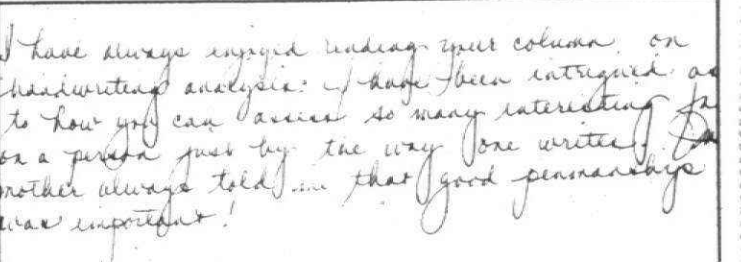 I have always enjoyed reading your column on
handwriting analysis. I have been intrigued as
to how you can assess so many interesting
on a person just by the way one writes.
mother always told me that good penmanship
was important!